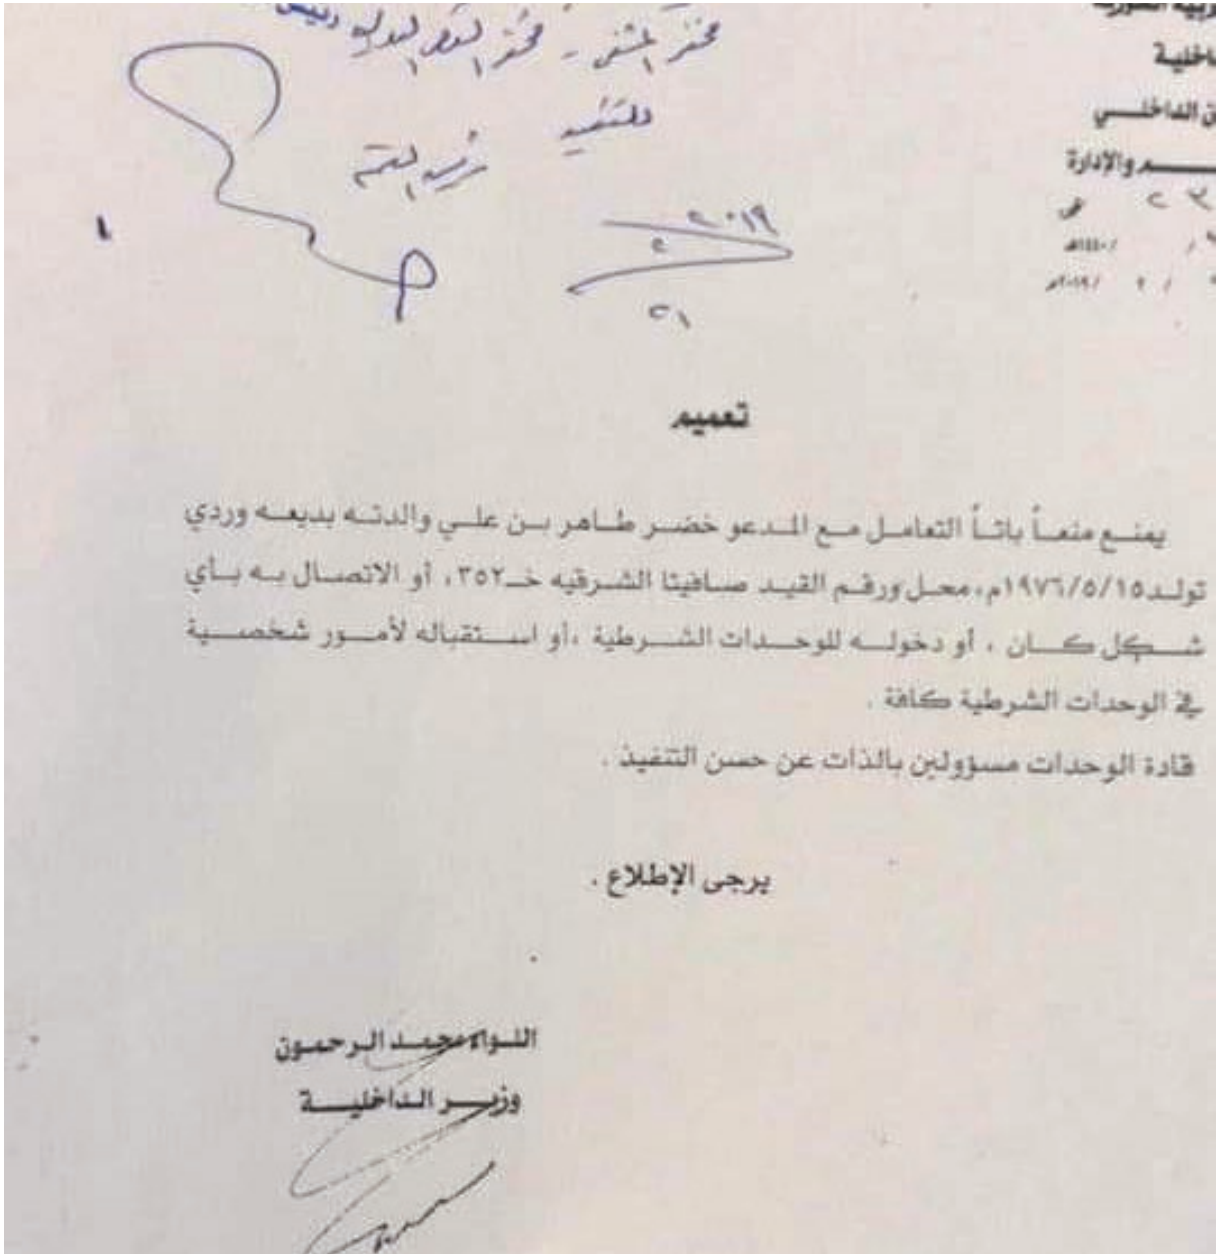 محفر المشفى -
للتنفيذ
رئيس القسم
٢٠١٩
٢
٢١
١
اخلية
ن الداخلـــي
والإدارة
٢٣ ص
/ /١٤٤٠هـ
/ ٢ /٢٠١٩م
تعميم
يمنـع منعـاً باتـاً التعامـل مـع المـدعو خضـر طـاهر بـن علـي والدتـه بديعـه وردي
تولـد١٩٧٦/٥/١٥م، محـل ورقـم القيـد صـافيتا الشـرقيه خــ٣٥٢، أو الاتصـال بـه بـأي
شـــكل كـــان ، أو دخولـــه للوحـــدات الشـــرطية ،أو اســـتقباله لأمـــور شخصـــية
في الوحدات الشرطية كافة .
قادة الوحدات مسؤولين بالذات عن حسن التنفيذ .
يرجى الإطلاع .
اللــواء محمــد الرحمــون
وزيـــر الداخليـــة